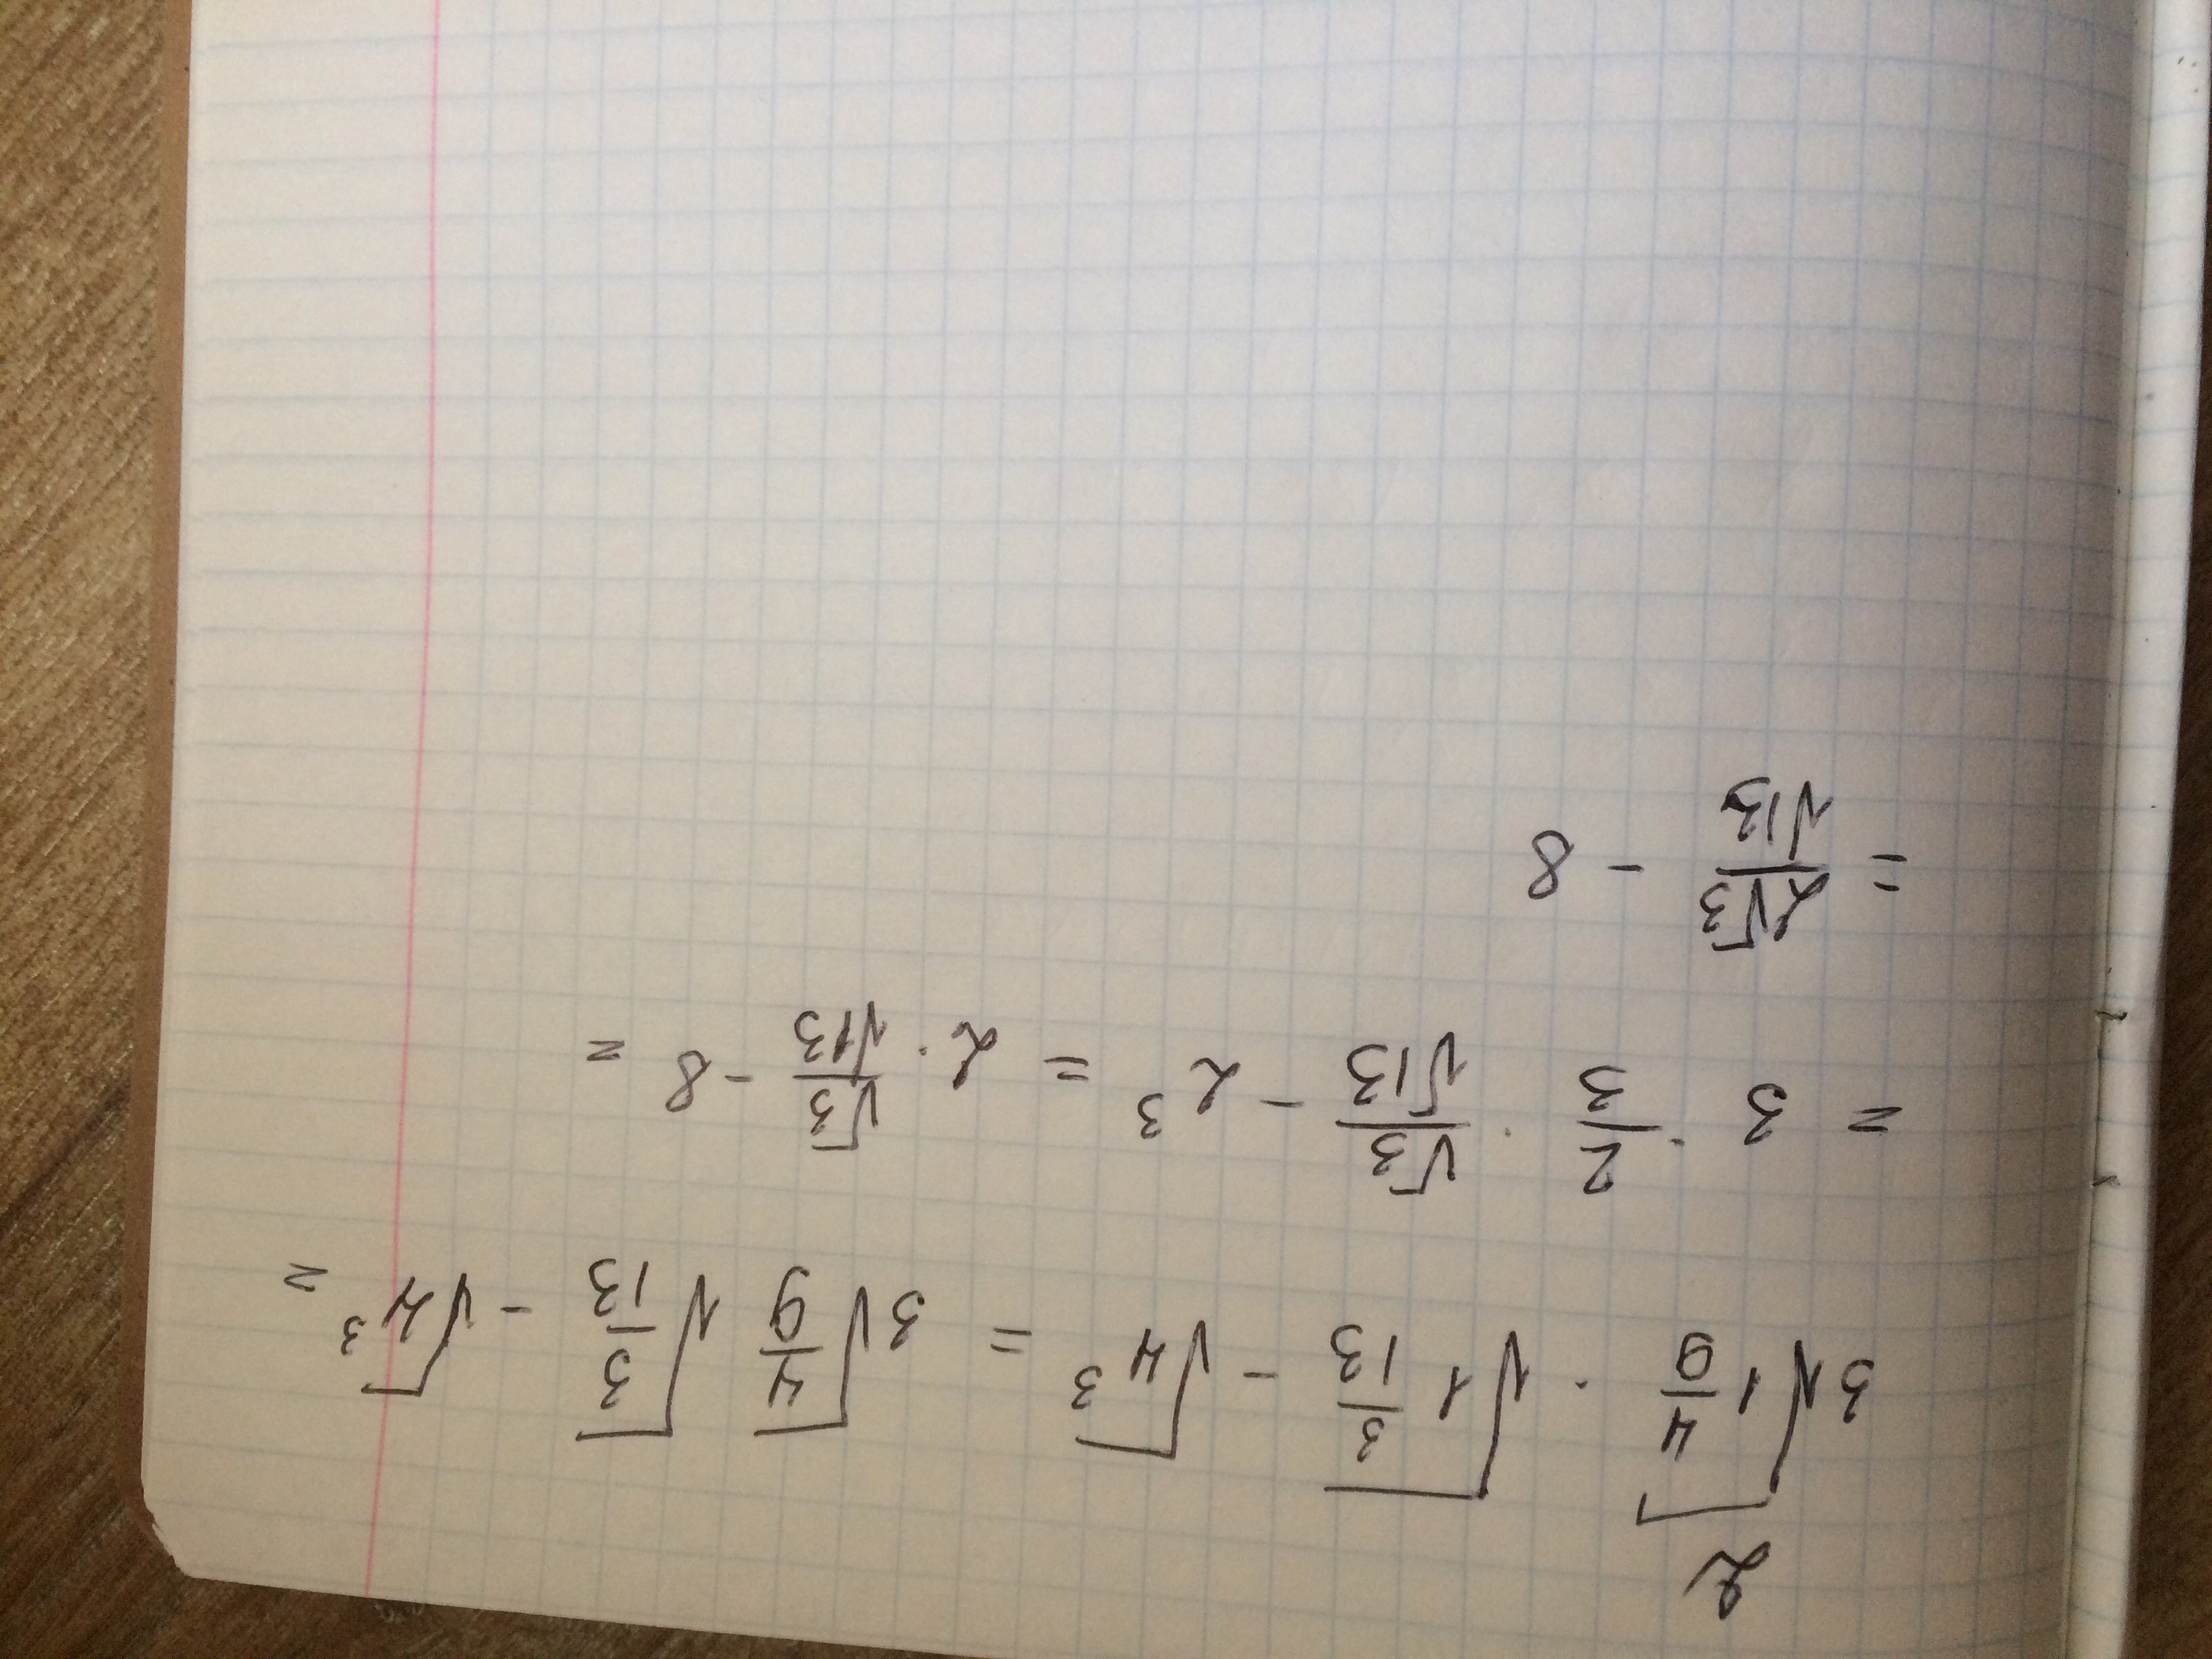 2
3√(1 4/9) · √(1 3/13) - √(4³) = 3√(4/9) √(3/13) - √(4³) =
= 3 · 2/3 · √3/√13 - 2³ = 2 · √3/√13 - 8 =
= 2√3/√13 - 8